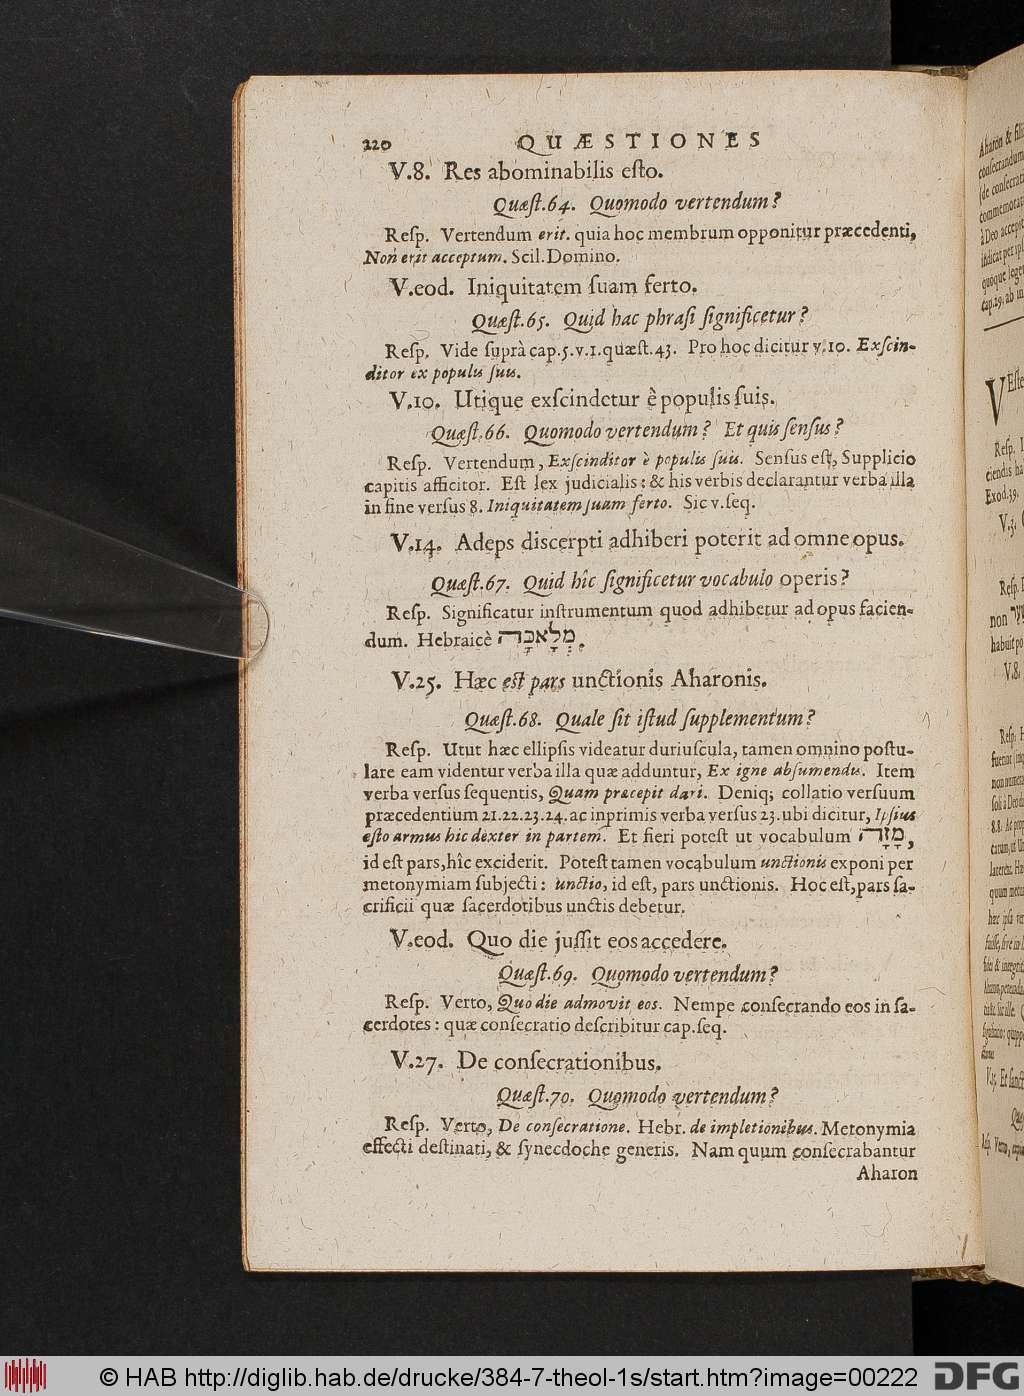 220 QUÆSTIONES
V.8. Res abominabilis eſto.
Quæſt.64. Quomodo vertendum?
Reſp. Vertendum erit. quia hoc membrum opponitur præcedenti,
Non erit acceptum. Scil. Domino.
V.eod. Iniquitatem ſuam ferto.
Quæſt.65. Quid hac phraſi ſignificetur?
Reſp. Vide ſuprà cap.5.v.1.quæſt.43. Pro hoc dicitur v.10. Exſcin-
ditor ex populis ſuis.
V.10. Utique exſcindetur è populis ſuis.
Quæſt.66. Quomodo vertendum? Et quis ſenſus?
Reſp. Vertendum, Exſcinditor è populis ſuis. Senſus eſt, Supplicio
capitis afficitor. Eſt lex judicialis: & his verbis declarantur verba illa
in fine verſus 8. Iniquitatem ſuam ferto. Sic v.ſeq.
V.14. Adeps diſcerpti adhiberi poterit ad omne opus.
Quæſt.67. Quid hîc ſignificetur vocabulo operis?
Reſp. Significatur inſtrumentum quod adhibetur ad opus facien-
dum. Hebraicè מְלָאכָה.
V.25. Hæc eſt pars unctionis Aharonis.
Quæſt.68. Quale ſit iſtud ſupplementum?
Reſp. Utut hæc ellipſis videatur duriuſcula, tamen omnino poſtu-
lare eam videntur verba illa quæ adduntur, Ex igne abſumendis. Item
verba verſus ſequentis, Quam præcepit dari. Deniq; collatio verſuum
præcedentium 21.22.23.24. ac inprimis verba verſus 23. ubi dicitur, Ipſius
eſto armus hic dexter in partem. Et fieri poteſt ut vocabulum מָנָה,
id eſt pars, hîc exciderit. Poteſt tamen vocabulum unctionis exponi per
metonymiam ſubjecti: unctio, id eſt, pars unctionis. Hoc eſt, pars ſa-
crificii quæ ſacerdotibus unctis debetur.
V.eod. Quo die juſſit eos accedere.
Quæſt.69. Quomodo vertendum?
Reſp. Verto, Quo die admovit eos. Nempe conſecrando eos in ſa-
cerdotes: quæ conſecratio deſcribitur cap.ſeq.
V.27. De conſecrationibus.
Quæſt.70. Quomodo vertendum?
Reſp. Verto, De conſecratione. Hebr. de impletionibus. Metonymia
effecti deſtinati, & ſynecdoche generis. Nam quum conſecrabantur
Aharon
© HAB http://diglib.hab.de/drucke/384-7-theol-1s/start.htm?image=00222
DFG